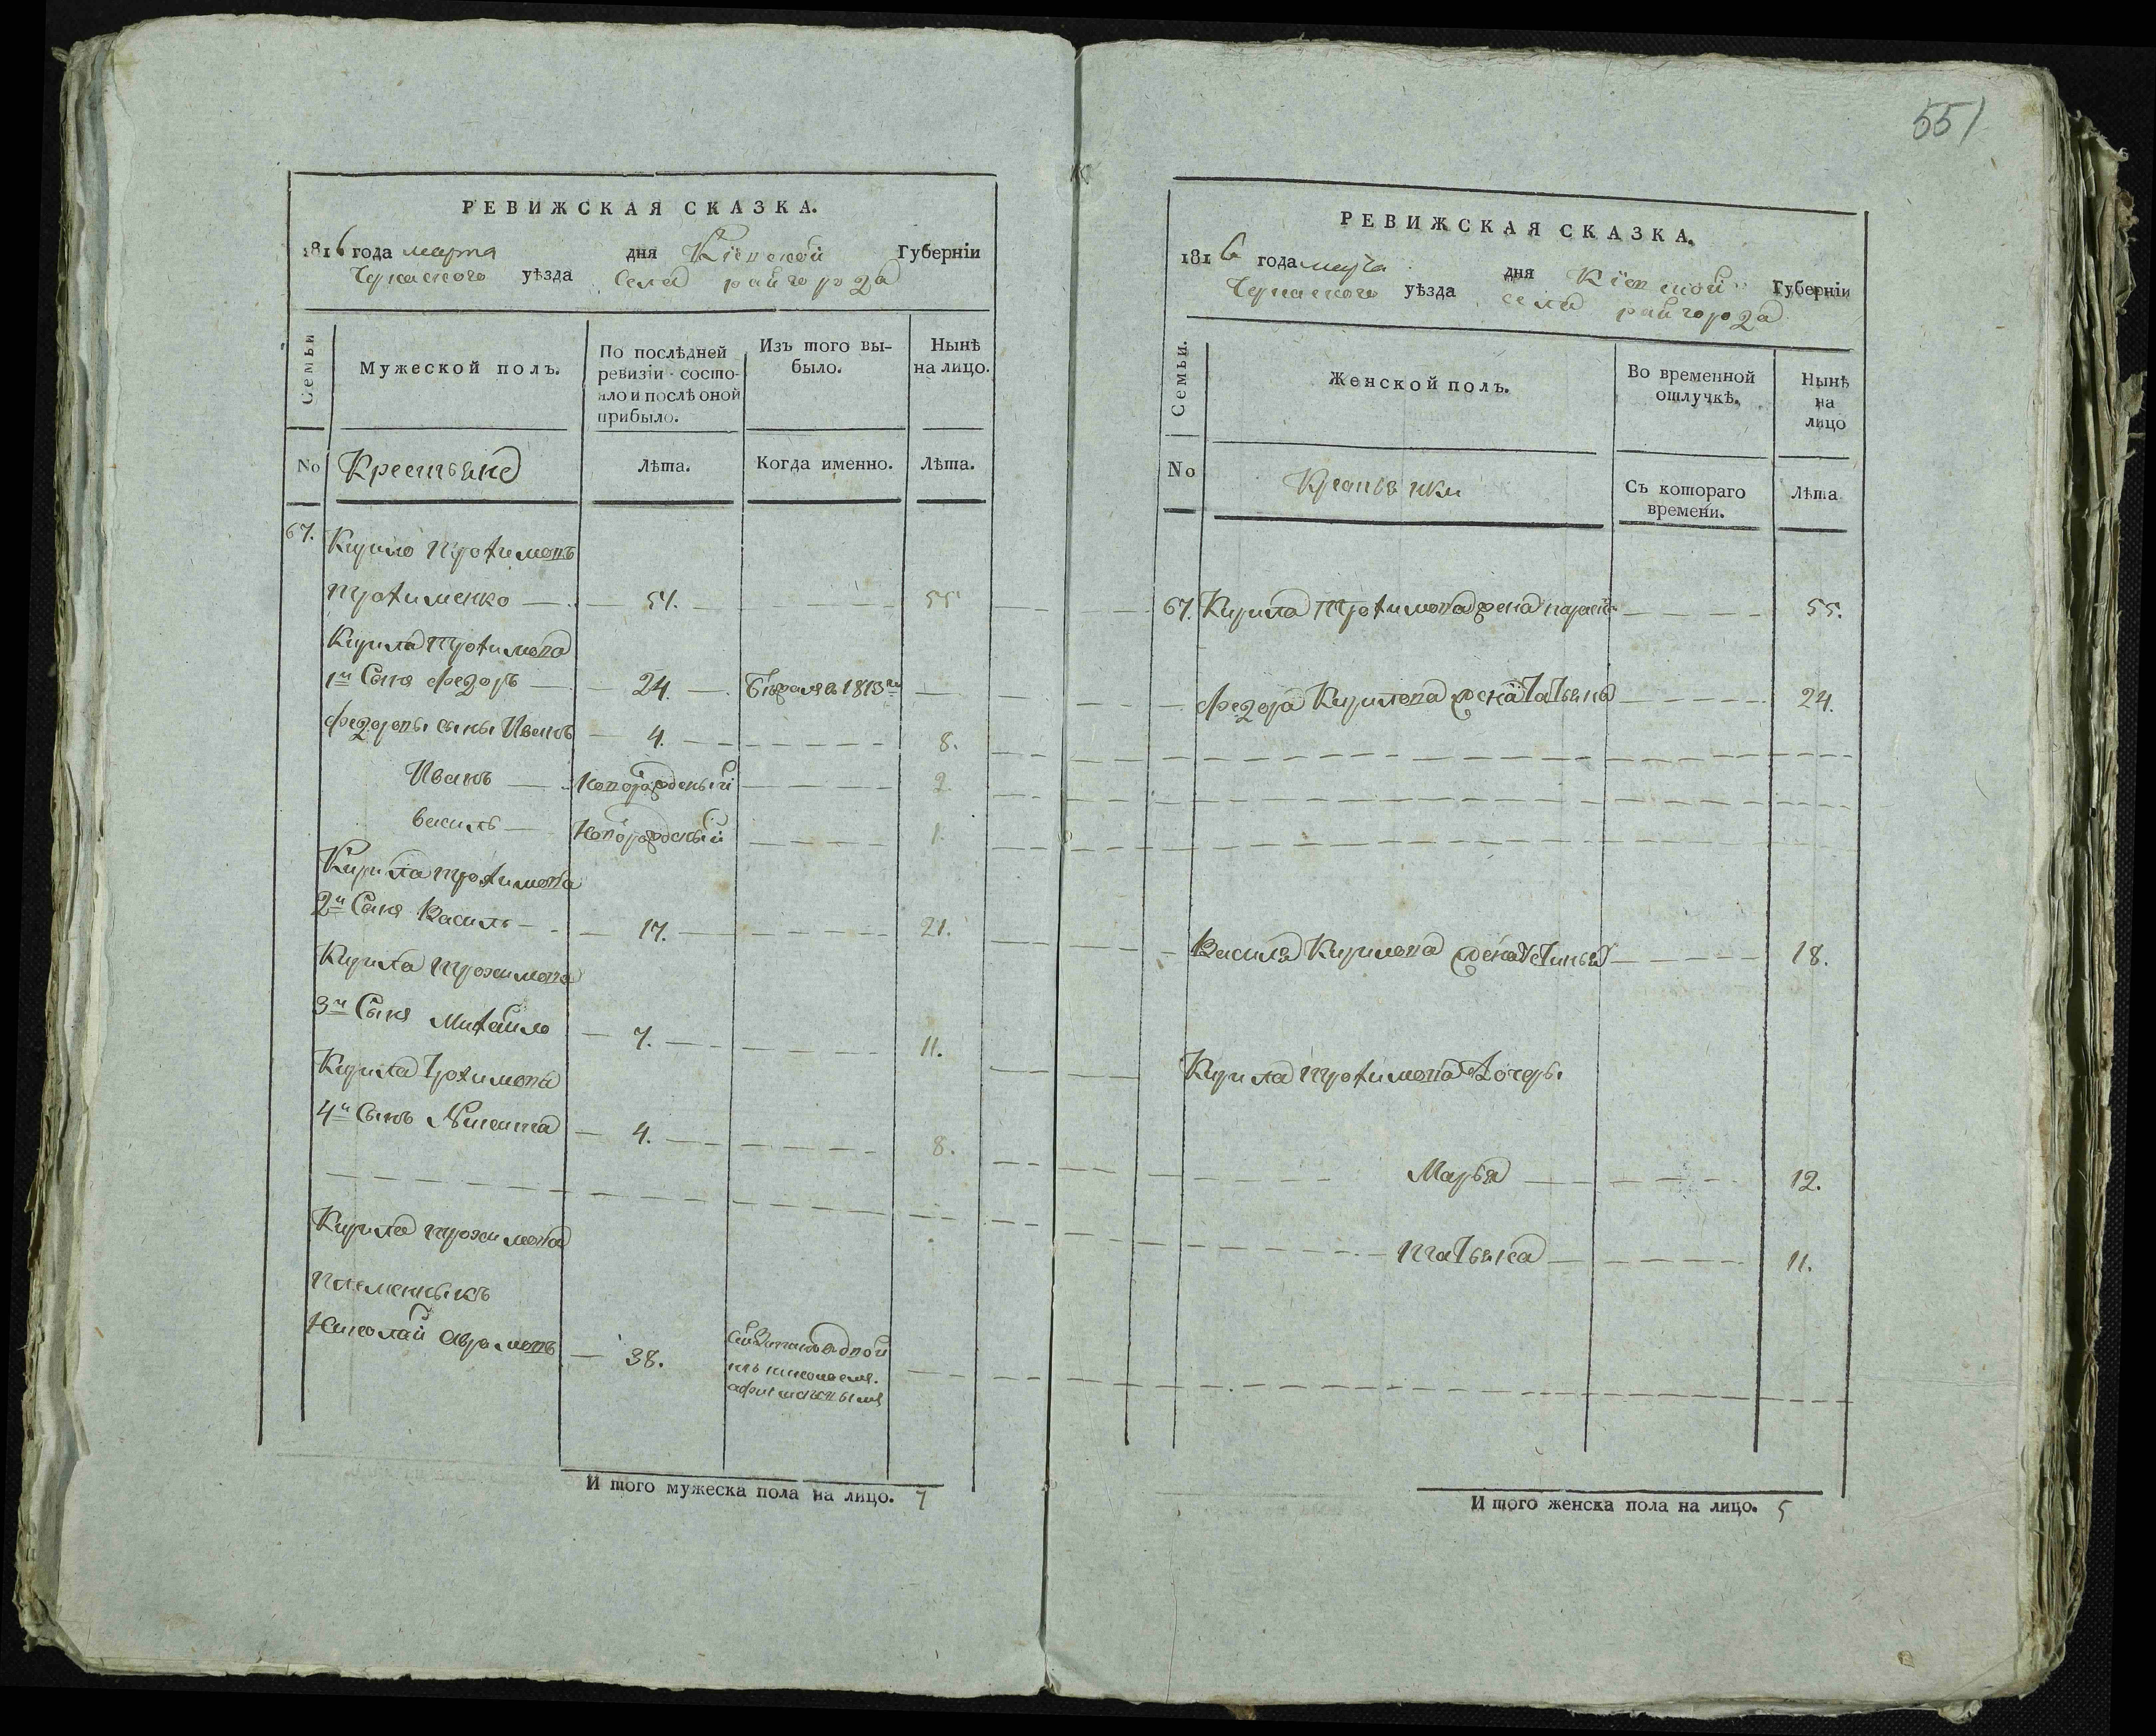 551
РЕВИЖСКАЯ СКАЗКА.
1816 года марта дня Кіевской Губерніи
Черкаского уѣзда Села райгорода
Семьи
Мужеской полъ.
По послѣдней ревизіи состояло и послѣ оной прибыло.
Изъ того выбыло.
Нынѣ на лицо.
No Крестьяне Лѣта. Когда именно. Лѣта.
67. Кирило Трохимовъ
Трохименко 51. 55
Кирила Трохимова
1й Сынъ Федоръ 24. 1813
Федоровы сыны Иванъ 4. 8.
Иванъ Новорожденый 2
Василь Новорожденый 1.
Кирила Трохимова
2й Сынъ Василь 17. 21.
Кирила Трохимова
3й Сынъ Михайло 7. 11.
Кирила Трохимова
4й Сынъ Никита 4. 8.
Кирила Трохимова
племенныкъ
Николай Аврамовъ 38.
И того мужеска пола на лицо. 7
РЕВИЖСКАЯ СКАЗКА.
1816 года марта дня Кіевской Губерніи
Черкаского уѣзда села райгорода
Семьи.
Женской полъ.
Во временной отлучкѣ.
Нынѣ на лицо
No Крестьянки Съ котораго времени. Лѣта
67. Кирила Трохимова жена 55.
Федора Кирилова жена Татьяна 24.
Василя Кирилова жена 18.
Кирила Трохимова дочеры
Марья 12.
Татьяна 11.
И того женска пола на лицо. 5